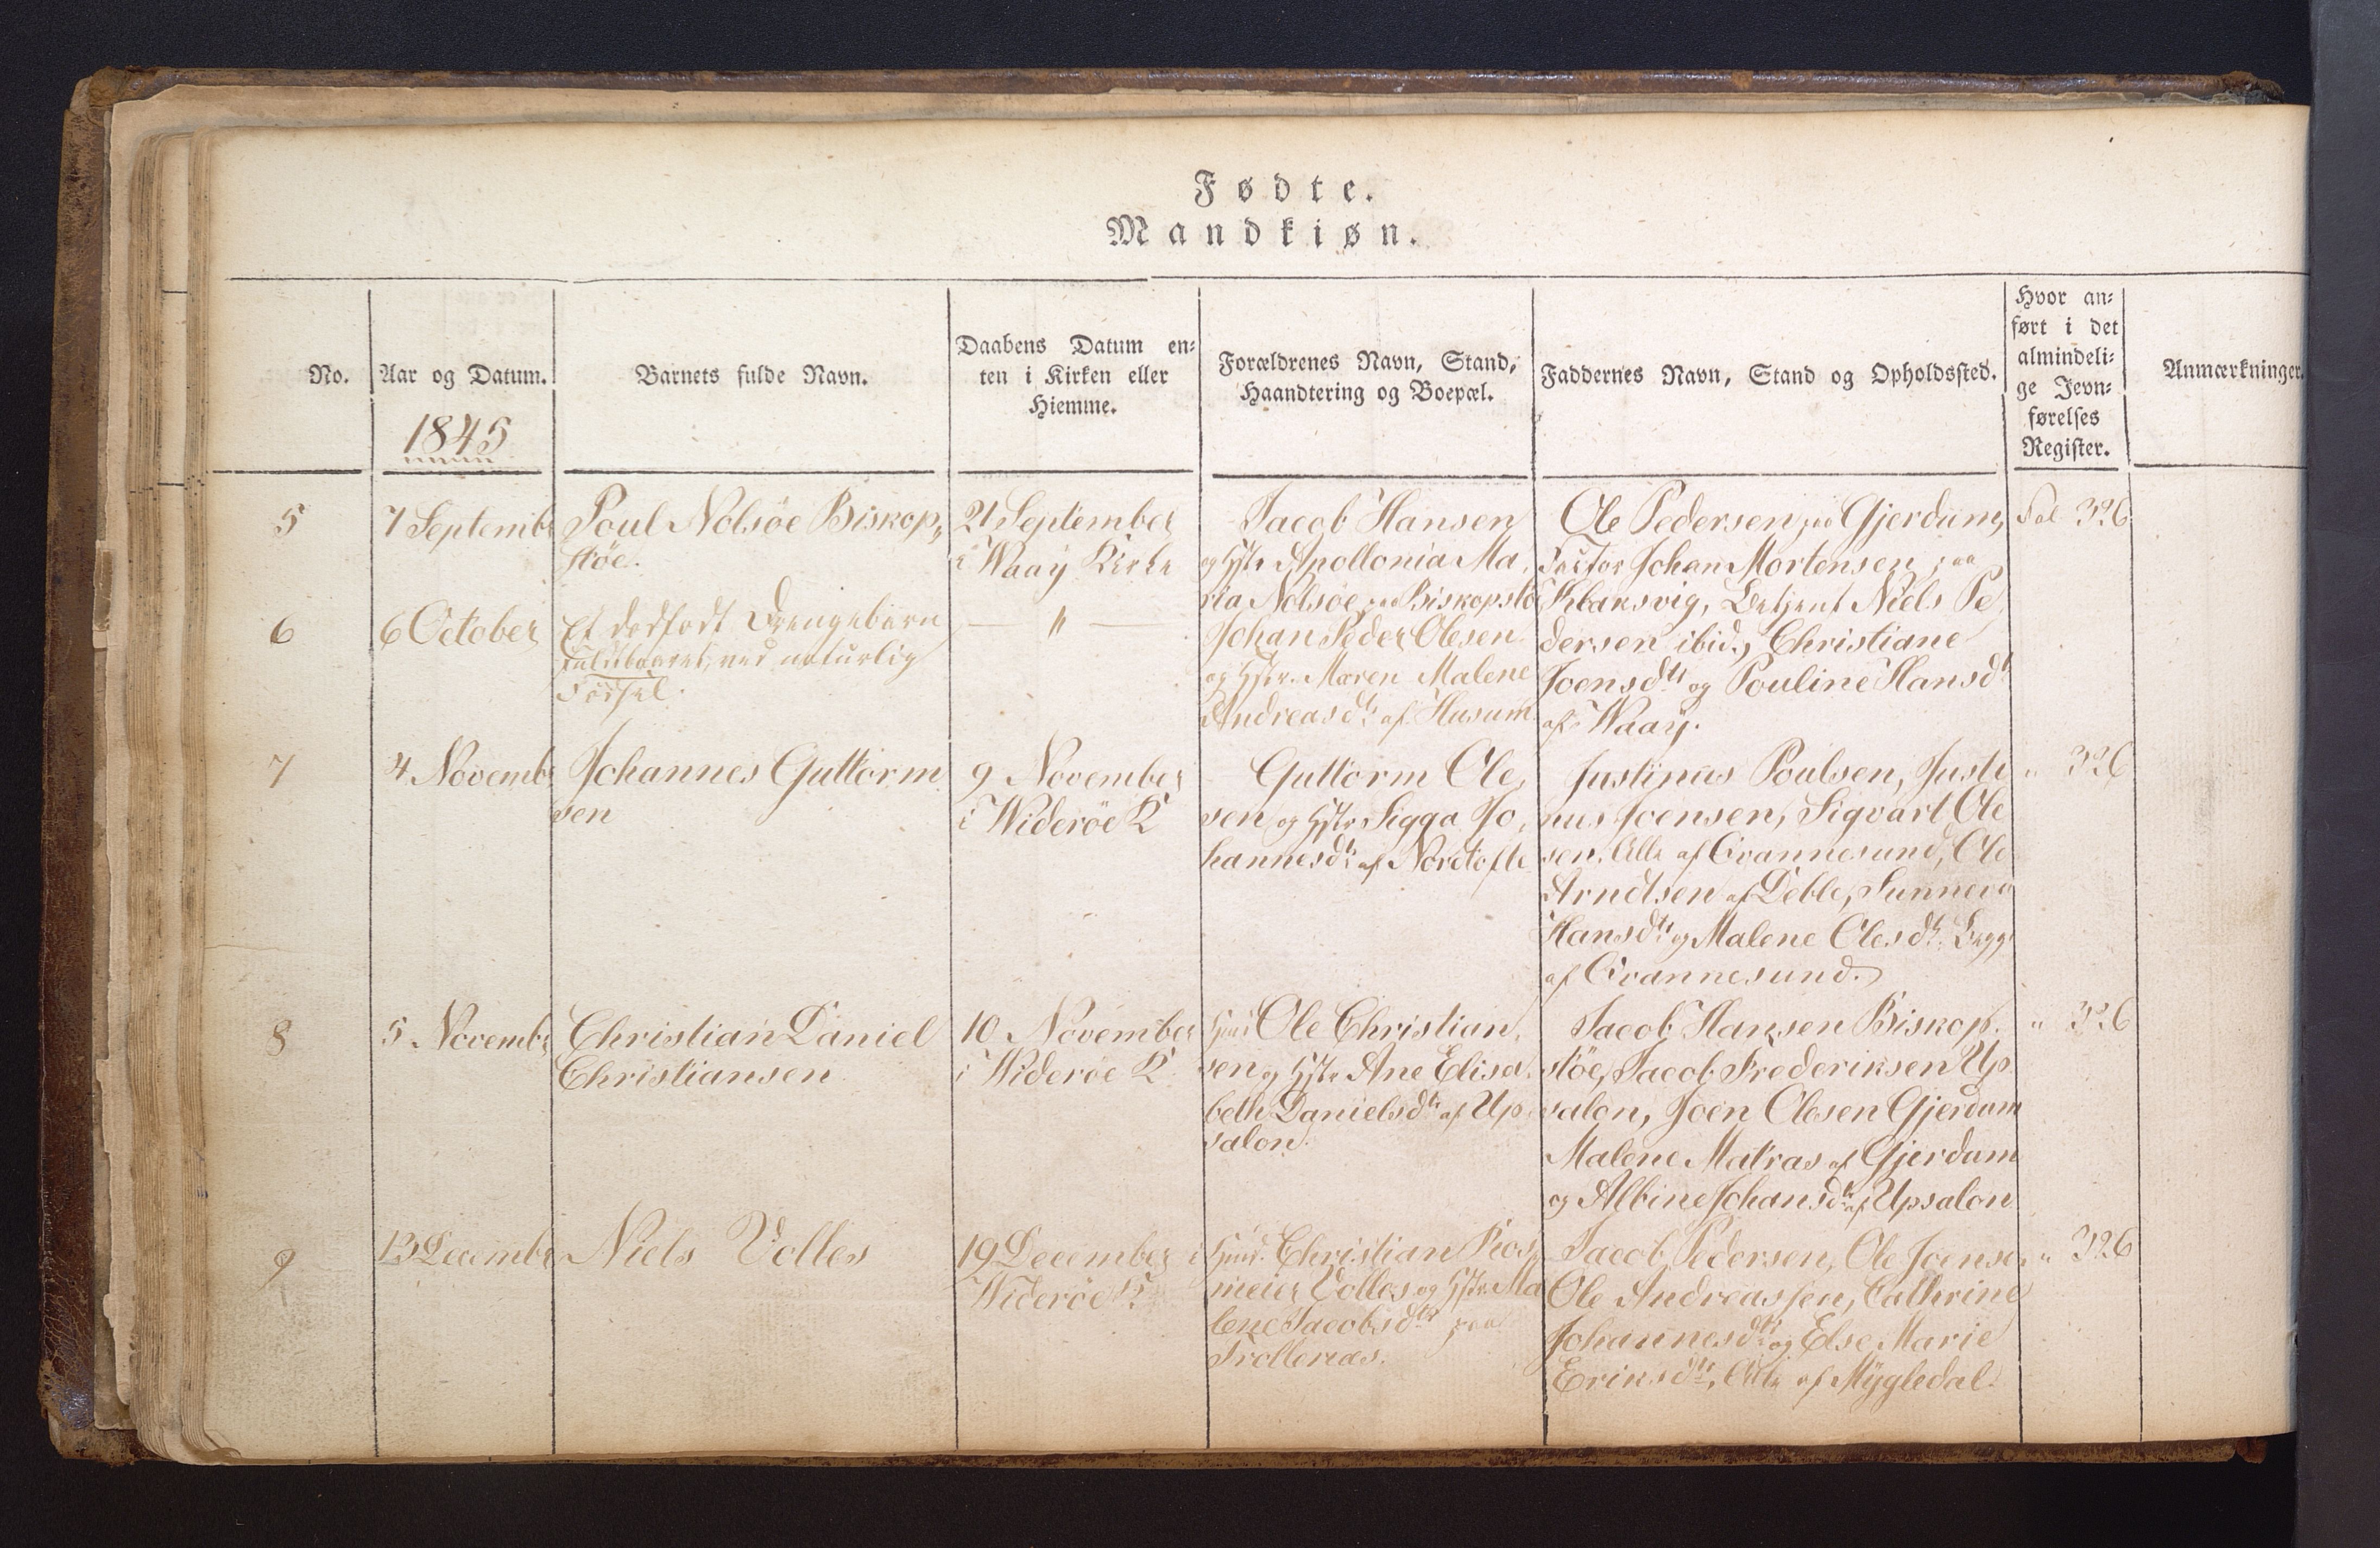 Fødte.
Mandkiøn.
No.
Aar og Datum.
1845
Barnets fulde Navn.
Daabens Datum en-
ten i Kirken eller
Hiemme.
Forældrenes Navn, Stand,
Haandtering og Boepæl.
Faddernes Navn, Stand og Opholdssted.
Hvor an-
ført i det
almindeli-
ge Jevn-
førelses
Register.
Anmærkninger.
5
7 Septembr
Poul Nolsöe Biskop-
stöe.
21 September
i Waay Kirke
Jacob Hansen
og Hstr Apollonia Ma-
ria Nolsöe paa Biskopstö
Ole Pedersen paa Gjerdum,
Factor Johan Mortensen paa
Klaksvig, Betjent Niels Pe-
dersen ibid, Christiane
Joensdtr og Pouline Hansdt
af Waay.
Fol 326
6
6 October
Et dödfödt Drengebarn
fuldbaaret, ved naturlig
Födsel.
— " —
Johan Peder Olesen
og Hstr. Maren Malene
Andreasdtr af Husum
7
4 Novembr
Johannes Guttorm-
sen
9 November
i Wideröe K
Guttorm Ole-
sen og Hstr Sigga Jo-
hannesdtr af Nordtofte
Justinus Poulsen, Justi-
nus Joensen, Sigvart Ole-
sen, Alle af Qvannesund, Ole
Arndtsen af Deble, Sunneva
Hansdtr og Malene Olesdtr, Begge
af Qvannesund.
" 326
8
5 Novembr
Christian Daniel
Christiansen
10 November
i Wideröe K
Ole Christian-
sen og Hstr Ane Elisa-
beth Danielsdtr af Up-
salon.
Jacob Hansen Biskop-
stöe, Jacob Frederiksen Up-
salon, Joen Olesen Gjerdum
Malene Matras af Gjerdum
og Albine Johansdtr af Upsalon
" 326
9
13 Decembr
Niels Volles
19 December i
Wideröe K
Christian Ros-
meier Volles og Hstr. Ma-
lene Jacobsdtr paa
Trollenæs.
Jacob Pedersen, Ole Joensen
Ole Andreassen, Cathrine
Johannesdtr og Else Marie
Eriksdtr, Alle af Mygledal.
" 326